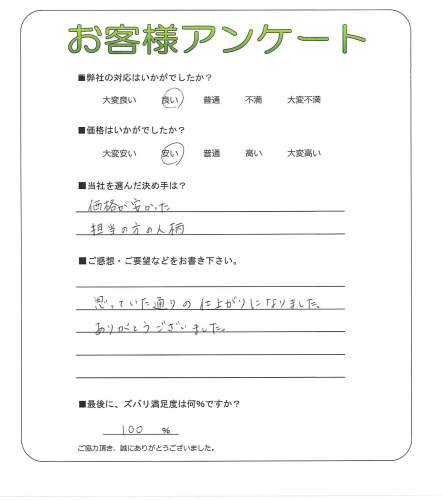 お客様アンケート
■弊社の対応はいかがでしたか？
大変良い 良い 普通 不満 大変不満
■価格はいかがでしたか？
大変安い 安い 普通 高い 大変高い
■当社を選んだ決め手は？
価格が安かった
担当の方の人柄
■ご感想・ご要望などをお書き下さい。
思っていた通りの仕上がりになりました。
ありがとうございました。
■最後に、ズバリ満足度は何％ですか？
100 ％
ご協力頂き、誠にありがとうございました。